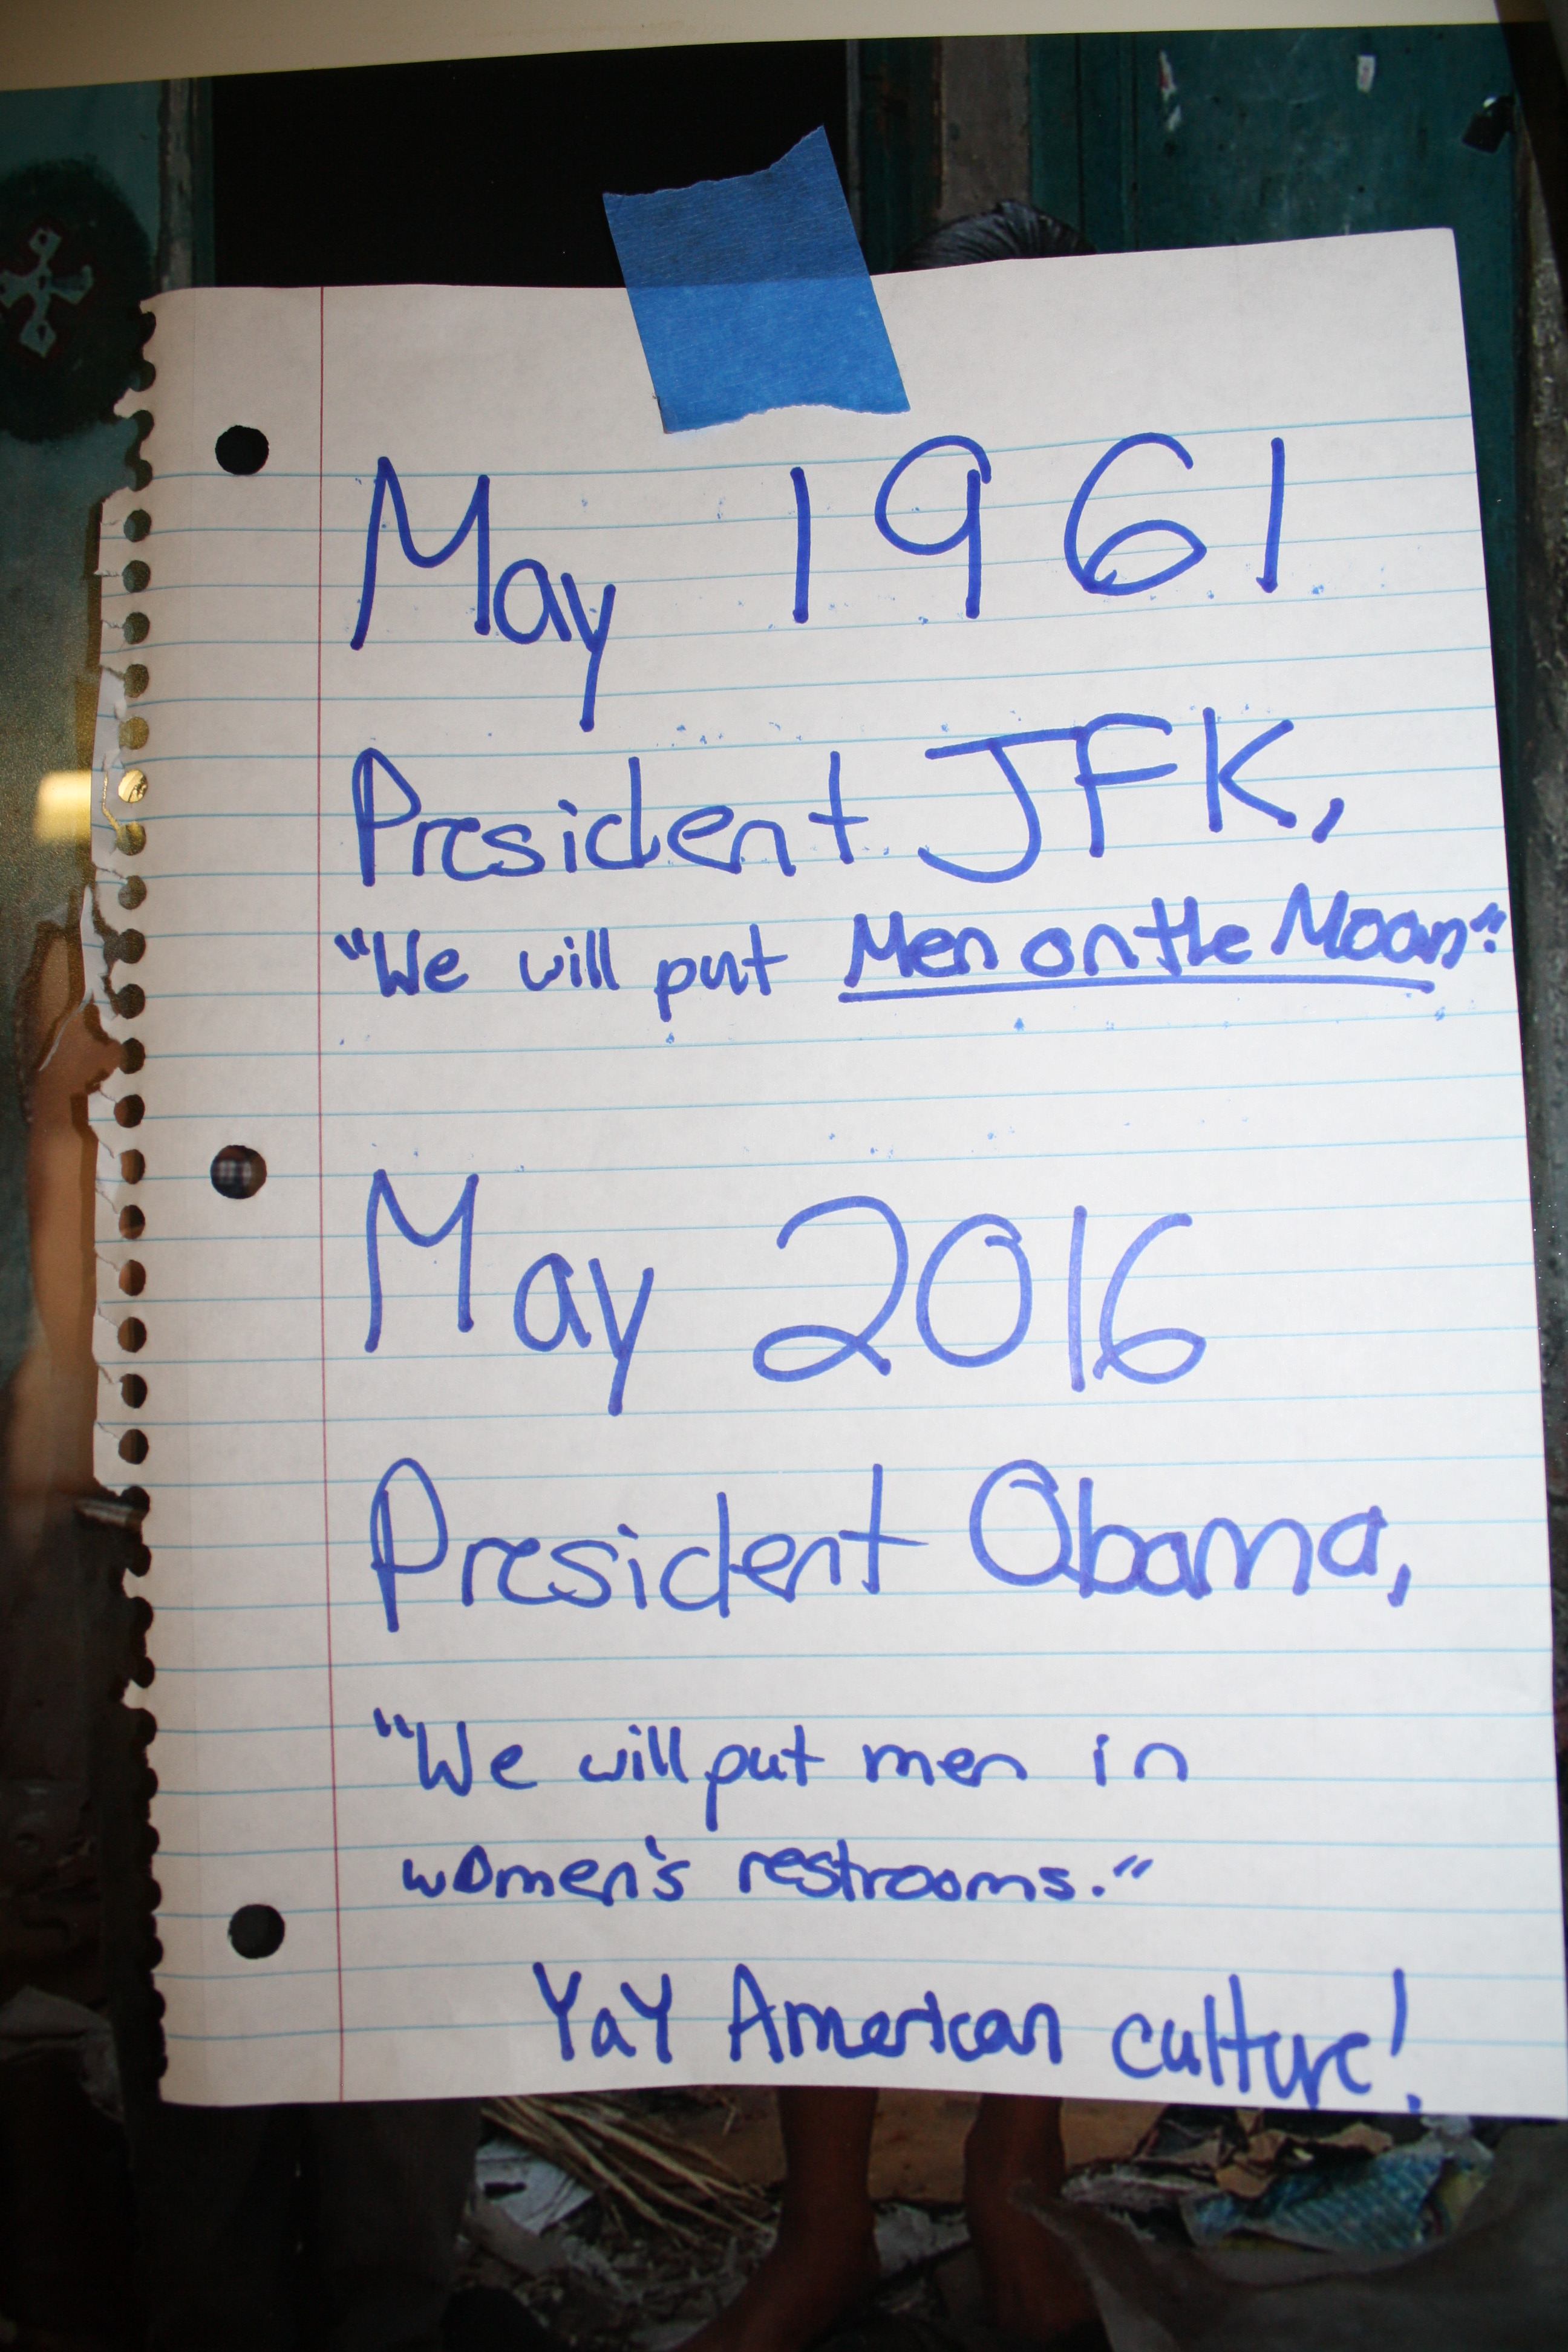 May 1961
President JFK,
"We will put Men on the Moon".
May 2016
President Obama,
"We will put men in
women's restrooms."
YaY American culture!